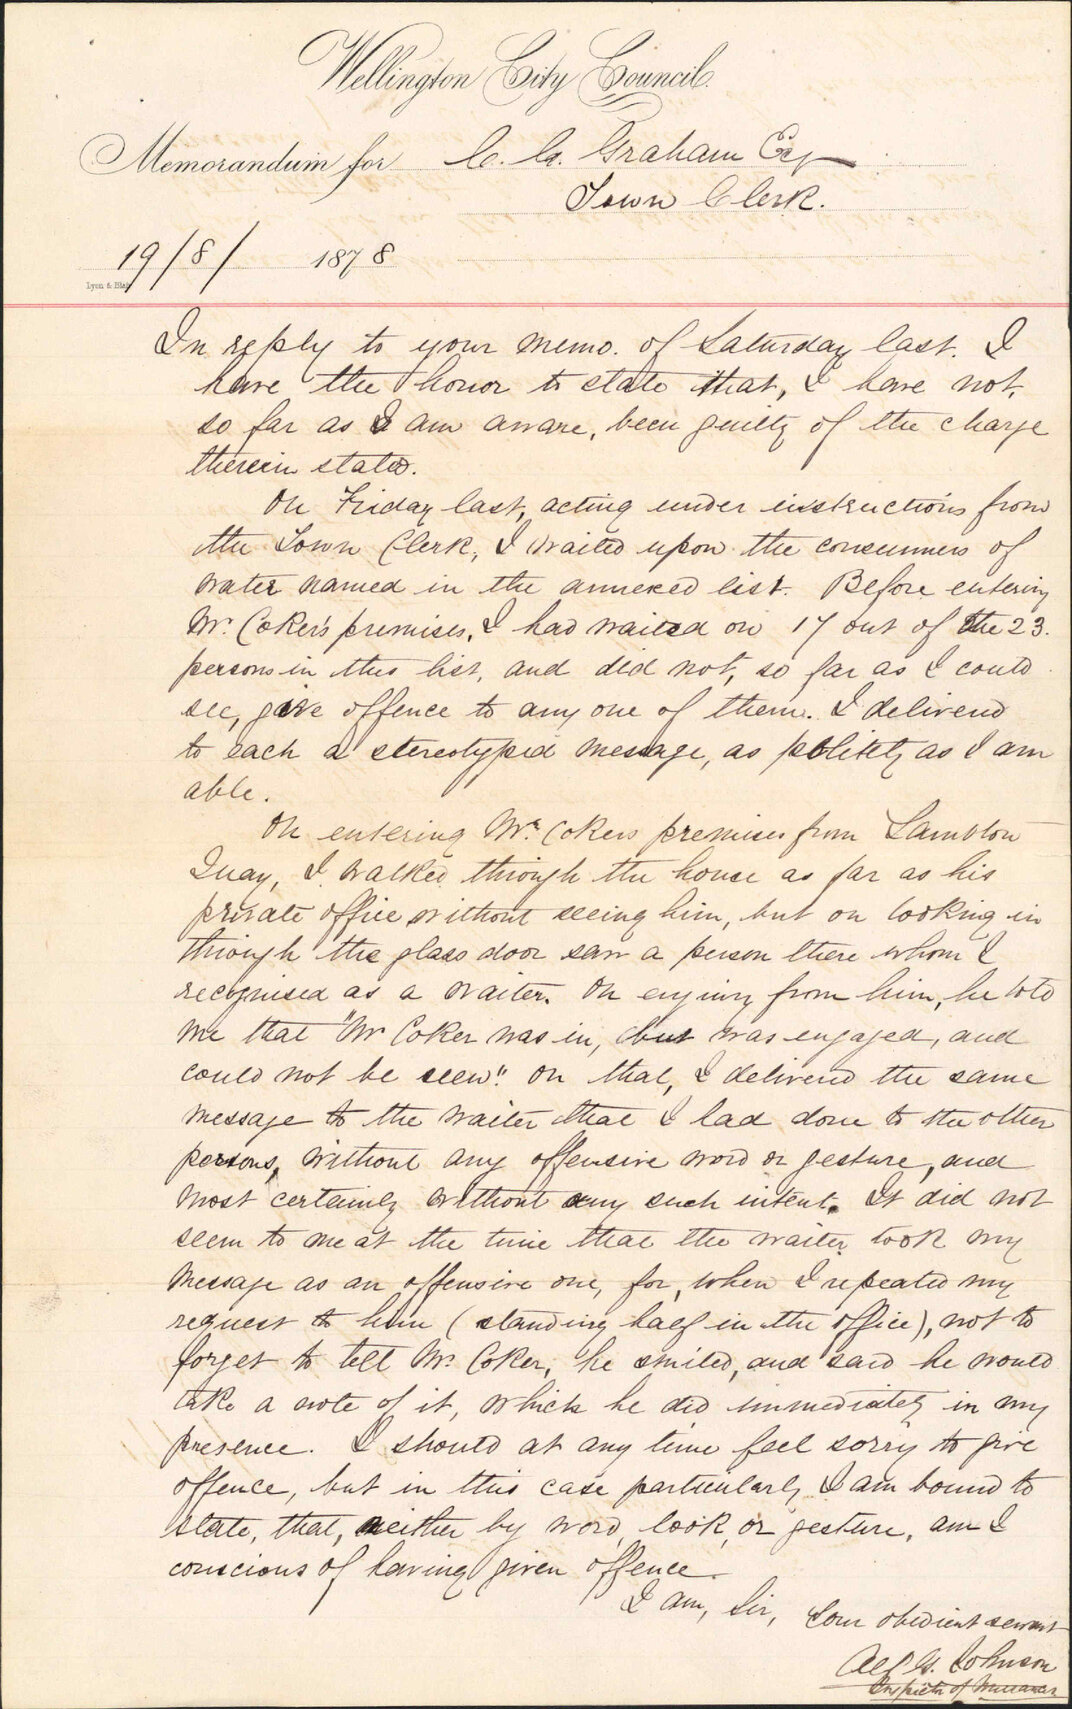 Wellington City Council.
Memorandum for C. G. Graham Esq
Town Clerk.
19/8/ 1878
Lyon & Blair
In reply to your memo. of Saturday last. I
have the honor to state that, I have not,
so far as I am aware, been guilty of the charge
therein stated.
On Friday last, acting under instructions from
the Town Clerk, I waited upon the consumers of
water named in the annexed list. Before entering
Mr. Coker's premises, I had waited on 17 out of the 23.
persons in this list, and did not, so far as I could
see, give offence to any one of them. I delivered
to each a stereotyped message, as politely as I am
able.
On entering Mr. Cokers premises from Lambton
Quay, I walked through the house as far as his
private office without seeing him, but on looking in
through the glass door saw a person there whom I
recognised as a waiter. On enquiry from him, he told
me that "Mr Coker was in, but was engaged, and
could not be seen". On that, I delivered the same
message to the waiter that I had done to the other
persons, without any offensive word or gesture, and
most certainly without any such intent. It did not
seem to me at the time that the waiter took my
message as an offensive one, for, when I repeated my
request to him (standing half in the office), not to
forget to tell Mr. Coker, he smiled, and said he would
take a note of it, which he did immediately in my
presence. I should at any time feel sorry to give
offence, but in this case particularly I am bound to
state, that, neither by word, look, or gesture, am I
conscious of having given offence.
I am, Sir, Your obedient servant
G. Johnson
Inspector of Nuisances